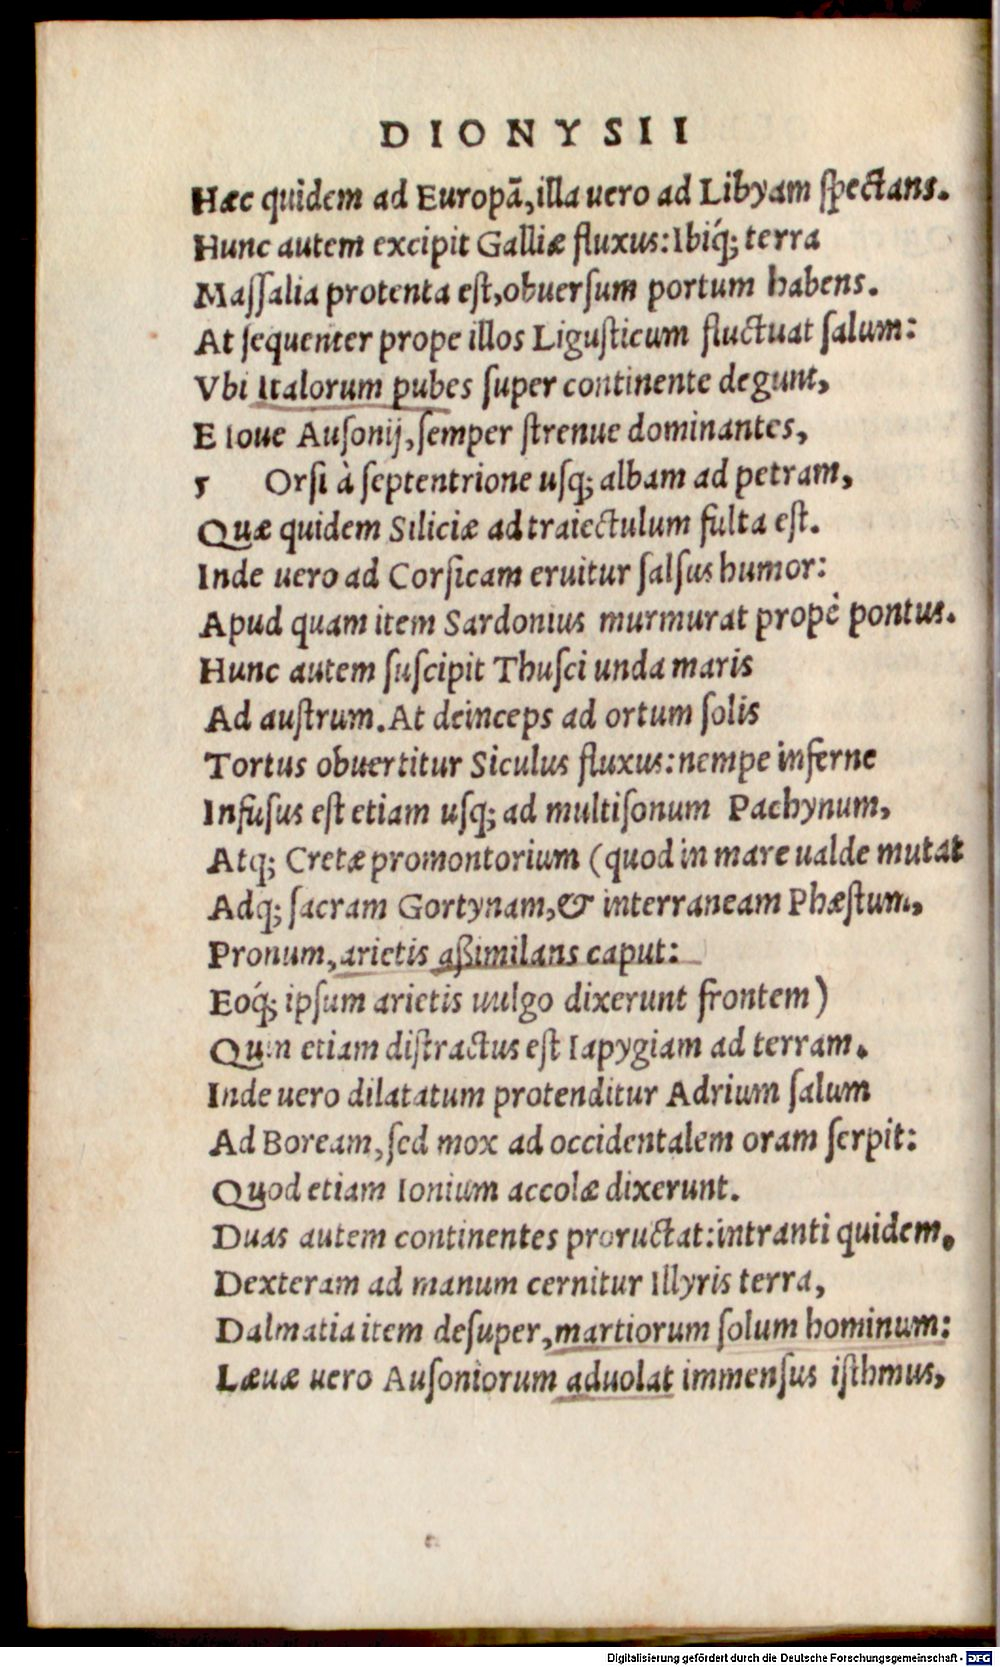 DIONYSII
Hæc quidem ad Europã, illa uero ad Libyam spectans.
Hunc autem excipit Galliæ fluxus: Ibiq́; terra
Massalia protenta est, obuersum portum habens.
At sequenter prope illos Ligusticum fluctuat salum:
Vbi Italorum pubes super continente degunt,
E Ioue Ausonij, semper strenue dominantes,
5 Orsi à septentrione usq; albam ad petram,
Quæ quidem Siliciæ ad traiectulum fulta est.
Inde uero ad Corsicam eruitur salsus humor:
Apud quam item Sardonius murmurat propè pontus.
Hunc autem suscipit Thusci unda maris
Ad austrum. At deinceps ad ortum solis
Tortus obuertitur Siculus fluxus: nempe inferne
Infusus est etiam usq; ad multisonum Pachynum,
Atq; Cretæ promontorium (quod in mare ualde mutat
Adq; sacram Gortynam, & interraneam Phæstum,
Pronum, arietis aßimilans caput:
Eoq́; ipsum arietis uulgo dixerunt frontem)
Quin etiam distractus est Iapygiam ad terram.
Inde uero dilatatum protenditur Adrium salum
Ad Boream, sed mox ad occidentalem oram serpit:
Quod etiam Ionium accolæ dixerunt.
Duas autem continentes proructat: intranti quidem,
Dexteram ad manum cernitur Illyris terra,
Dalmatia item desuper, martiorum solum hominum:
Læuæ uero Ausoniorum aduolat immensus isthmus,
Digitalisierung gefördert durch die Deutsche Forschungsgemeinschaft - DFG